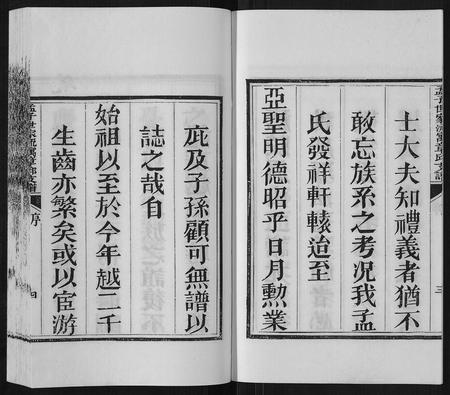 士大夫知禮義者猶不
敢忘族系之考況我孟
氏發祥軒轅迨至
亞聖明德昭乎日月勳業
庇及子孫顧可無譜以
誌之哉自
始祖以至於今年越二千
生齒亦繁矣或以宦游
孟子世家流寓
序
三
四